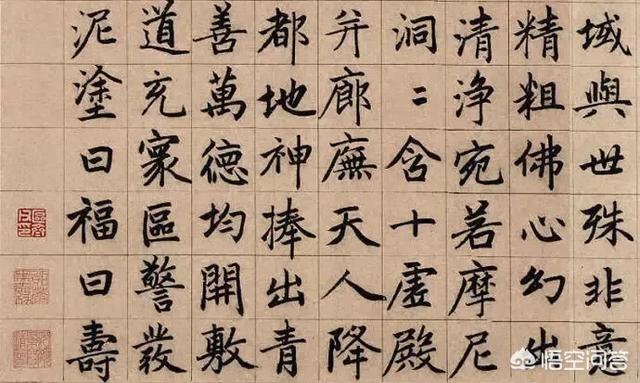 域與世殊非意
精粗佛心幻出
清浄宛若摩尼
洞〻含十虛殿
并廊廡天人降
都地神捧出青
善萬德均開敷
道充寰區警發
泥塗曰福曰壽
悟空问答